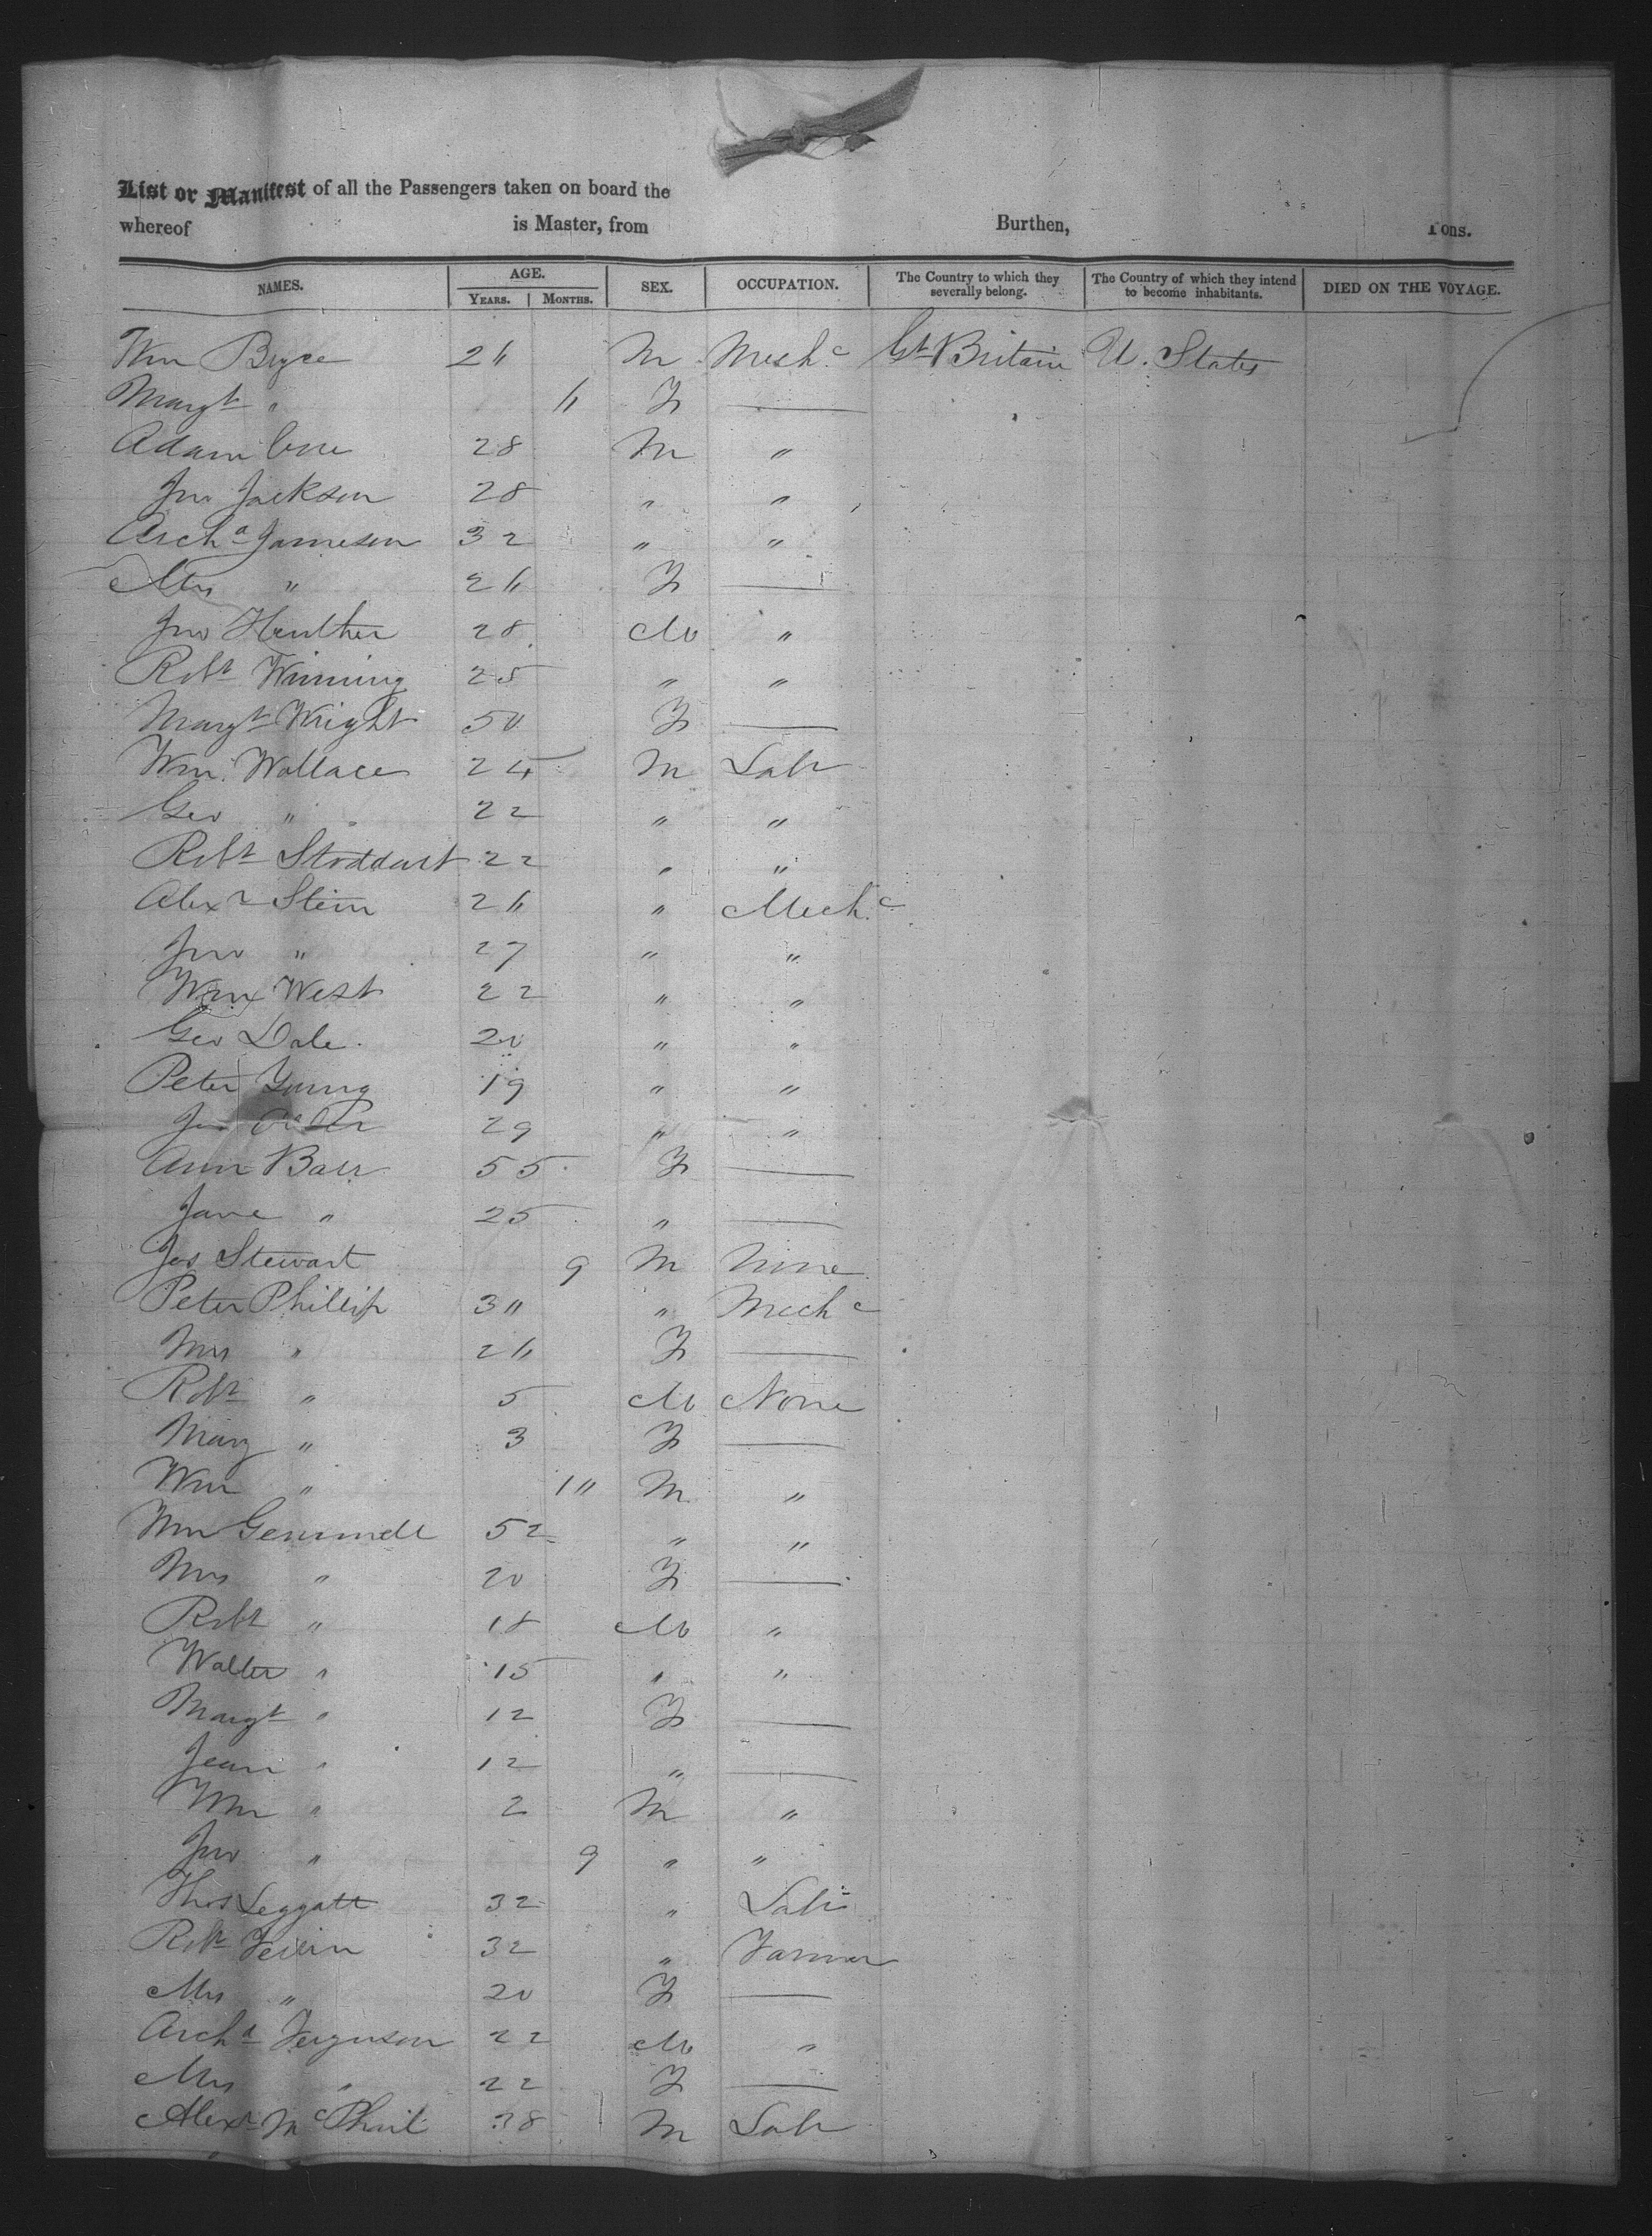 List or Manifest of all the Passengers taken on board the
whereof is Master, from Burthen, Tons.
NAMES. AGE. YEARS. MONTHS. SEX. OCCUPATION. The Country to which they severally belong. The Country of which they intend to become inhabitants. DIED ON THE VOYAGE.
Wm Bryce M Mechc Gt Britain U. States
Margt " F —
Adam 28 M "
Jno Jackson 28 " "
Archd Jameson 32 " "
Mrs " F —
Jno 28 M "
Robt Winning 25 " "
Margt Wright 50 F —
Wm Wallace 24 M Labr
Geo " 22 " "
Robt Stoddart 22 " "
Alexr Stein " Mechc
Jno " 27 " "
Wm West 22 " "
Geo Dale 20 " "
Peter Young 19 " "
29 " "
Ann Barr 55 F —
Jane " 25 " —
Jas Stewart 9 M None
Peter Phillip " Mechc
Mrs " F —
Robt " 5 M None
Mary " 3 F —
Wm " M "
Wm Gemmell 52 " "
Mrs " 20 F —
Robt " 18 M "
Walter " 15 " "
Margt " 12 F —
Jean " 12 " —
Wm " 2 M "
Jno " 9 " "
Thos Leggatt 32 " Labr
Robt 32 " Farmer
Mrs " 20 F —
Archd Ferguson 22 M "
Mrs " 22 F —
Alexr McPhail 38 M Labr